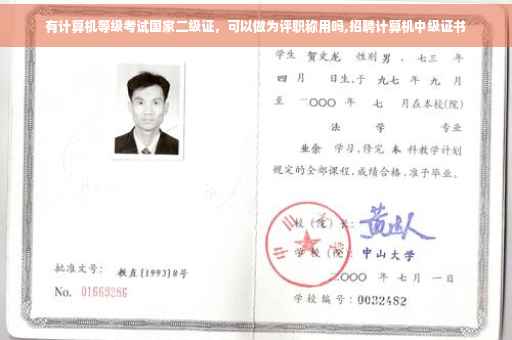 有计算机等级考试国家二级证，可以做为评职称用吗,招聘计算机中级证书
学生 贺文龙 性别 男 、七三 年
四 月 日生,于 九七 年 九 月
至 二〇〇〇 年 七 月在本校(院)
法 学 专业
业余 学习,修完 本 科教学计划
规定的全部课程,成绩合格,准予毕业。
校(院)长:
学 校(院): 中山大学
二〇〇〇 年 七 月 一 日
学校编号: 0032482
批准文号: 教直[1993]8号
No. 01669286